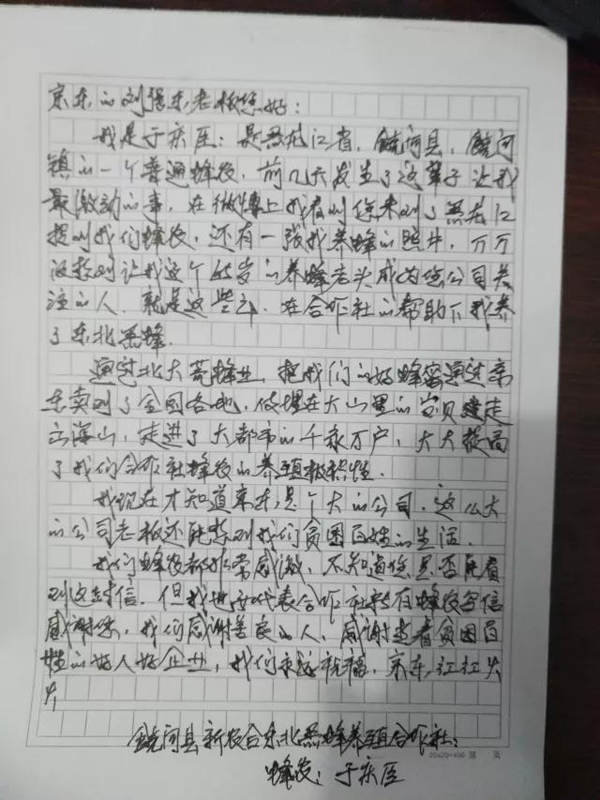 京东的刘强东老板您好：
我是于庆臣：是黑龙江省，饶河县，饶河
镇的一个普通蜂农，前几天发生了这辈子让我
最激动的事，在微博上我看到您来到了黑龙江
提到我们蜂农，还有一张我养蜂的照片，万万
没想到让我这个 岁的养蜂老头成为您公司关
注的人，就是这些年，在合作社的帮助下我养
了东北黑蜂。
通过北大荒蜂业，把我们的好蜂蜜通过京
东卖到了全国各地，使埋在大山里的宝贝走
出深山，走进了大都市的千家万户，大大提高
了我们合作社蜂农的养殖积极性。
我现在才知道京东是个大的公司，这么大
的公司老板还能想到我们贫困百姓的生活。
我们蜂农都非常感激，不知道您是否能看
到这封信，但我也要代表合作社所有蜂农写信
感谢您，我们感谢善良的人，感谢想着贫困百
姓的好人好企业，我们永远祝福，京东，红红火
火
饶河县新农合东北黑蜂养殖合作社：
蜂农：于庆臣
20x20=400 第 页